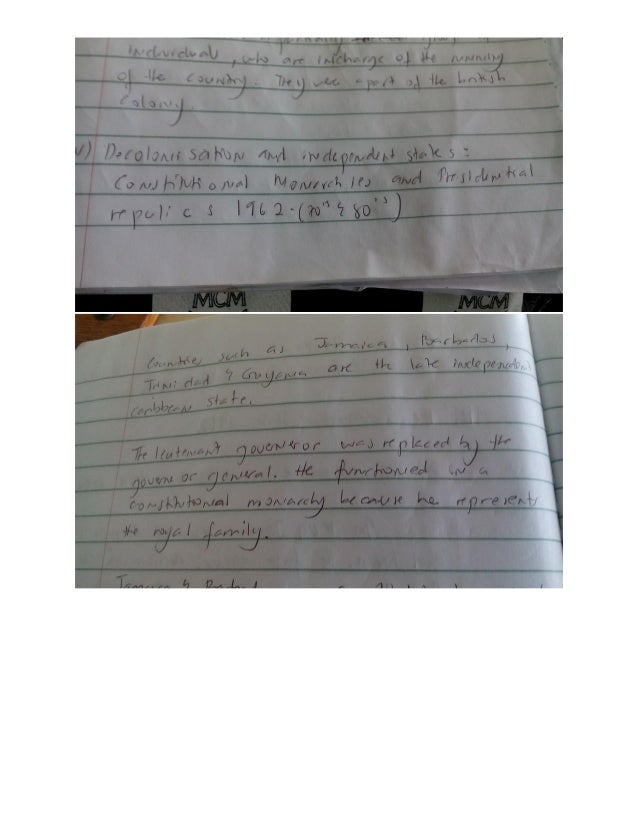 individual, who are incharge of the running
of the country. They were apart of the british
colony.
v) Decolonisation and independent states:
Constitutional Monarchies and Presidential
republics 1962-(70's & 80's)
MCM MCM
Countries such as Jamaica, Barbados,
Trinidad & Guyana are the late independent
caribbean state.
The leutenant governeror was replaced by the
governor general. He functioned in a
constitutional monarchy because he represents
the royal family.
Jamaica &